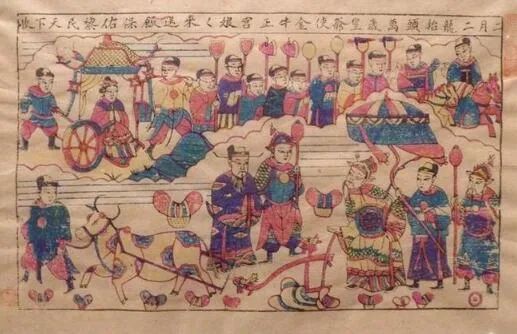 二月二龍抬頭萬歲皇爺使金牛正宮娘く來送飯保佑黎民天下收